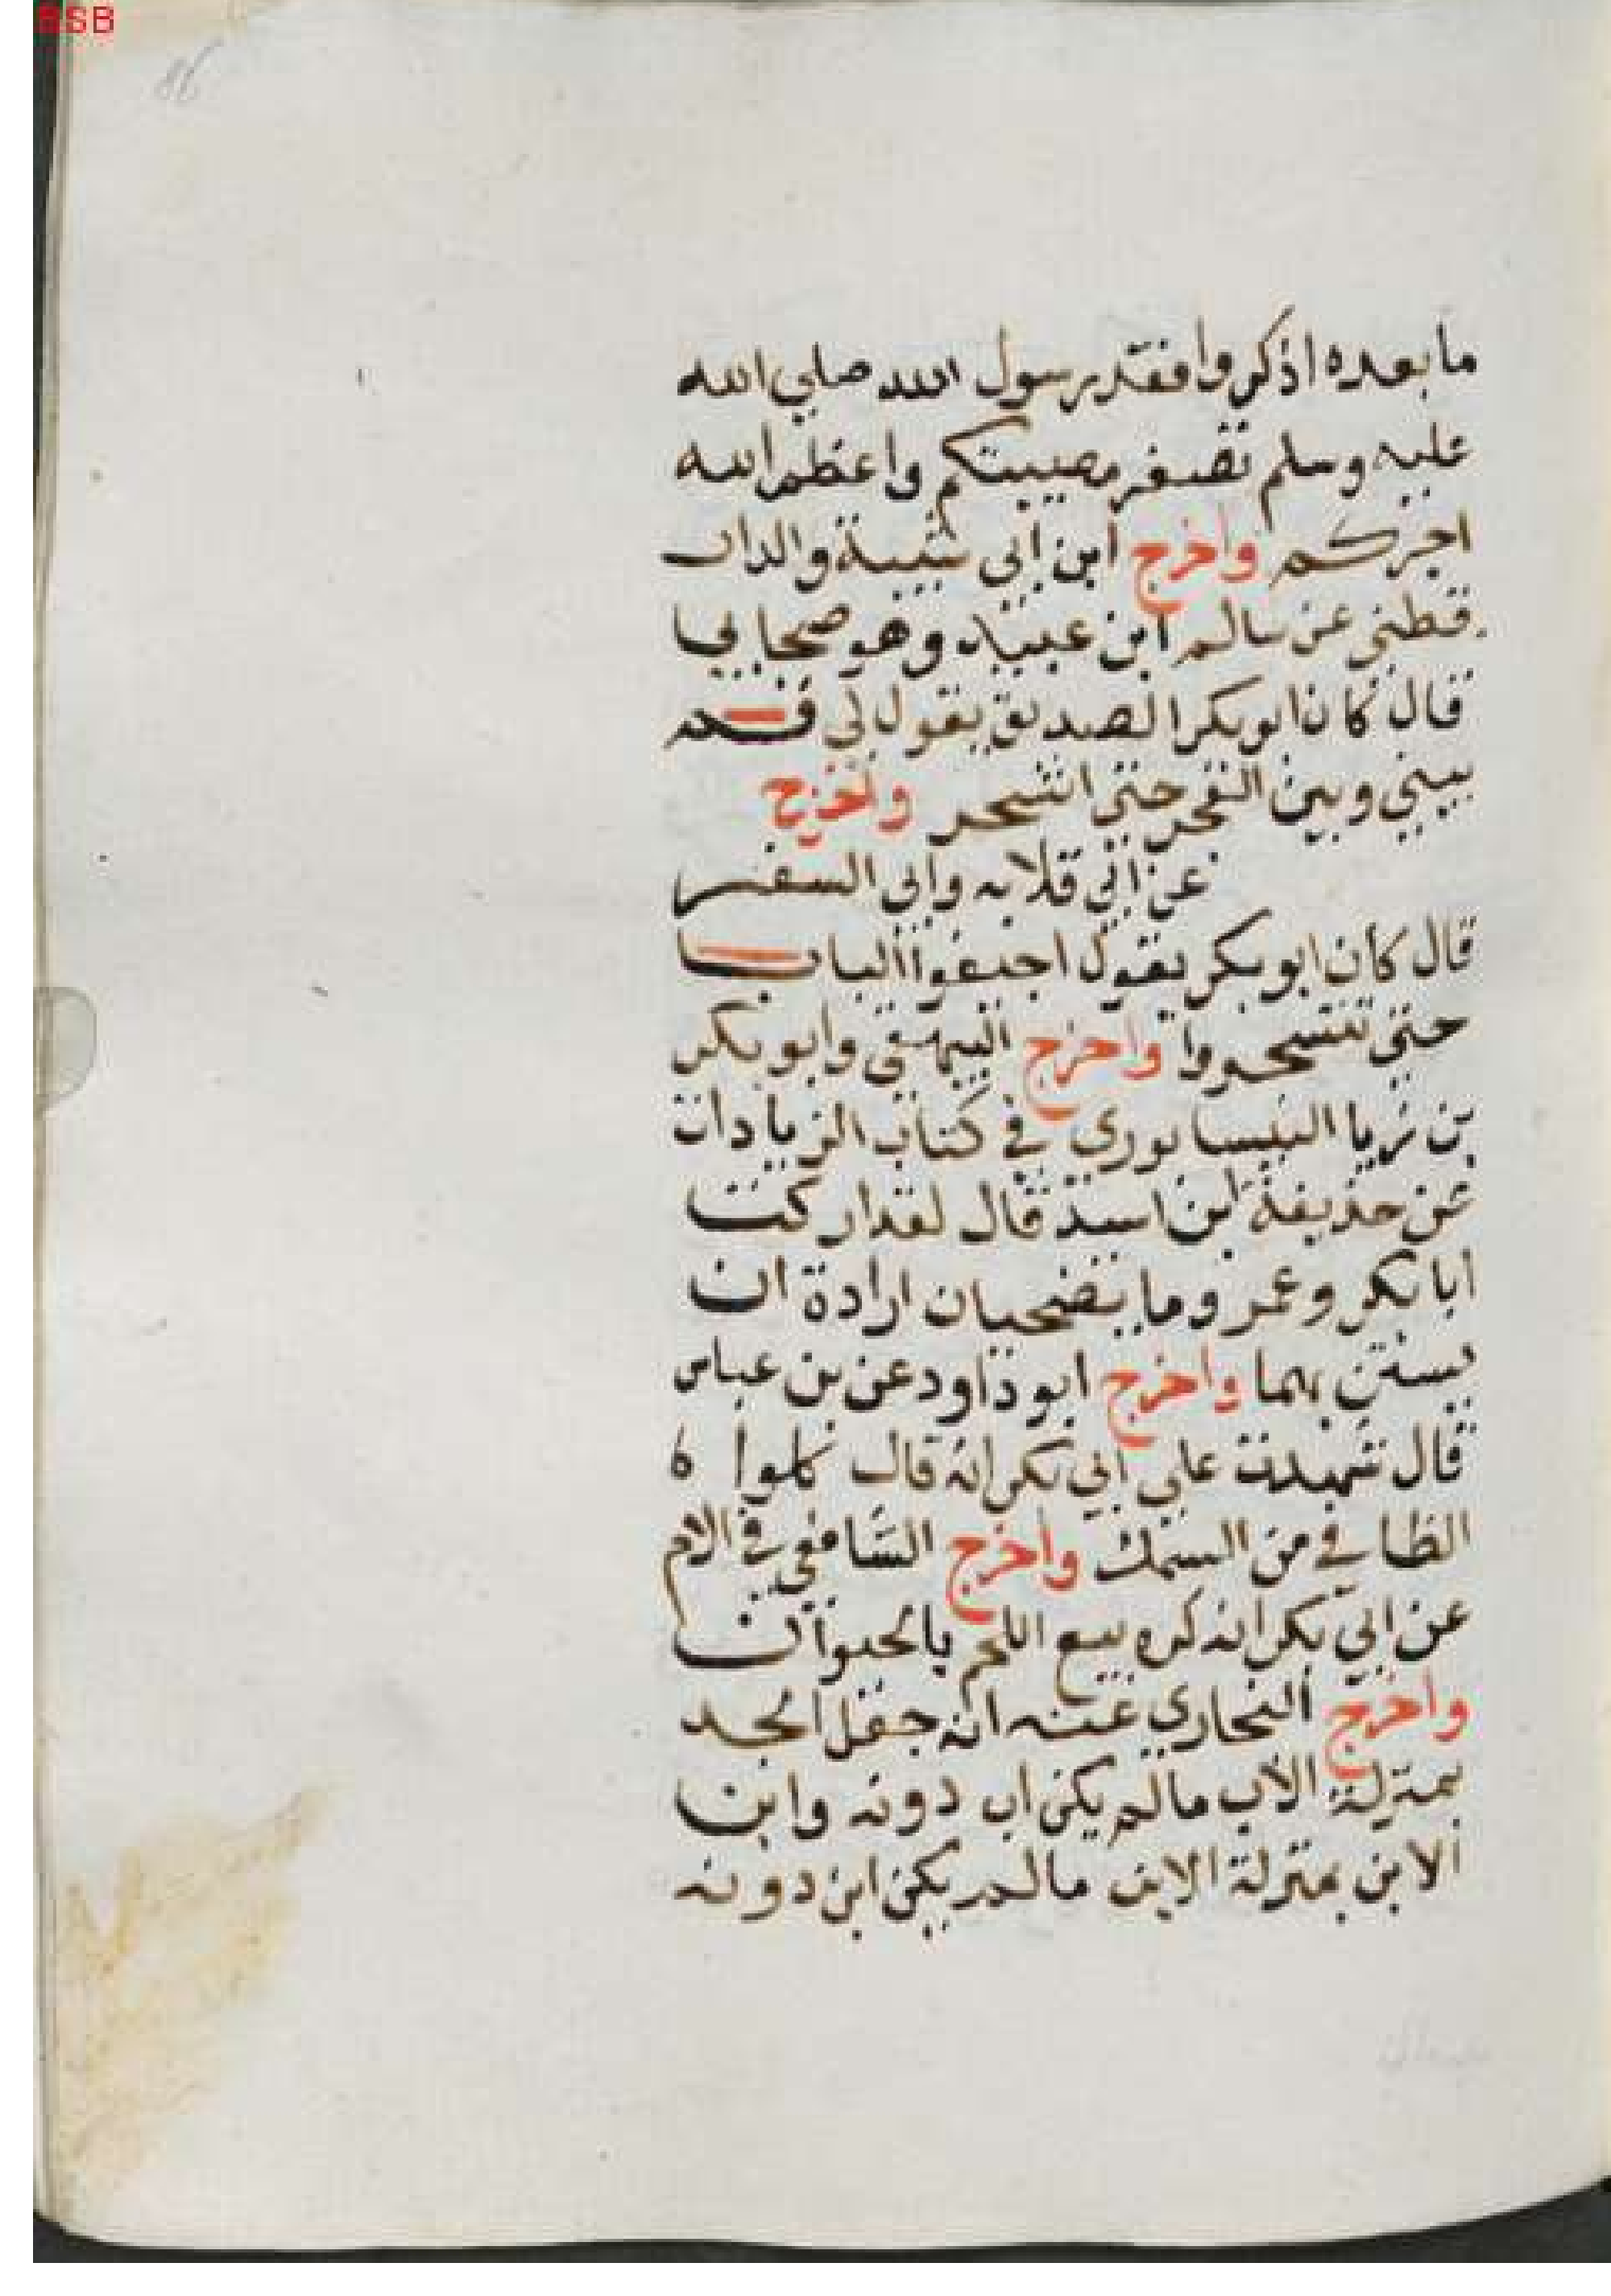 BSB
86
ما بعده اذكروا فقد رسول الله صلي الله
عليه وسلم تصغر مصيبتكم واعظم الله
اجركم واخرج ابن ابي شيبة والدار
قطني عن سالم ابن عبيد وهو صحابي
قال كان ابو بكر الصديق يقول لي قم
بيني وبين الفجر حتي اتسحر واخرج
عن ابي قلابه وابي السفر
قال كان ابو بكر يقول اجيفوا الباب
حتي تتسحروا واخرج البيهقي وابو بكر
بن زيا النيسابوري في كتاب الزيادات
عن حذيفة ابن اسيد قال لقد ادركت
ابا بكر وعمر وما يضحيان ارادة ان
يستن بهما واخرج ابو داود عن بن عباس
قال شهدت علي ابي بكر انه قال كلوا
الطافي من السمك واخرج الشافعي في الام
عن ابي بكر انه كره بيع اللحم بالحيوان
واخرج البخاري عنه انه جعل الجد
بمنزلة الاب ما لم يكن اب دونه وابن
الابن بمنزلة الابن ما لم يكن ابن دونه